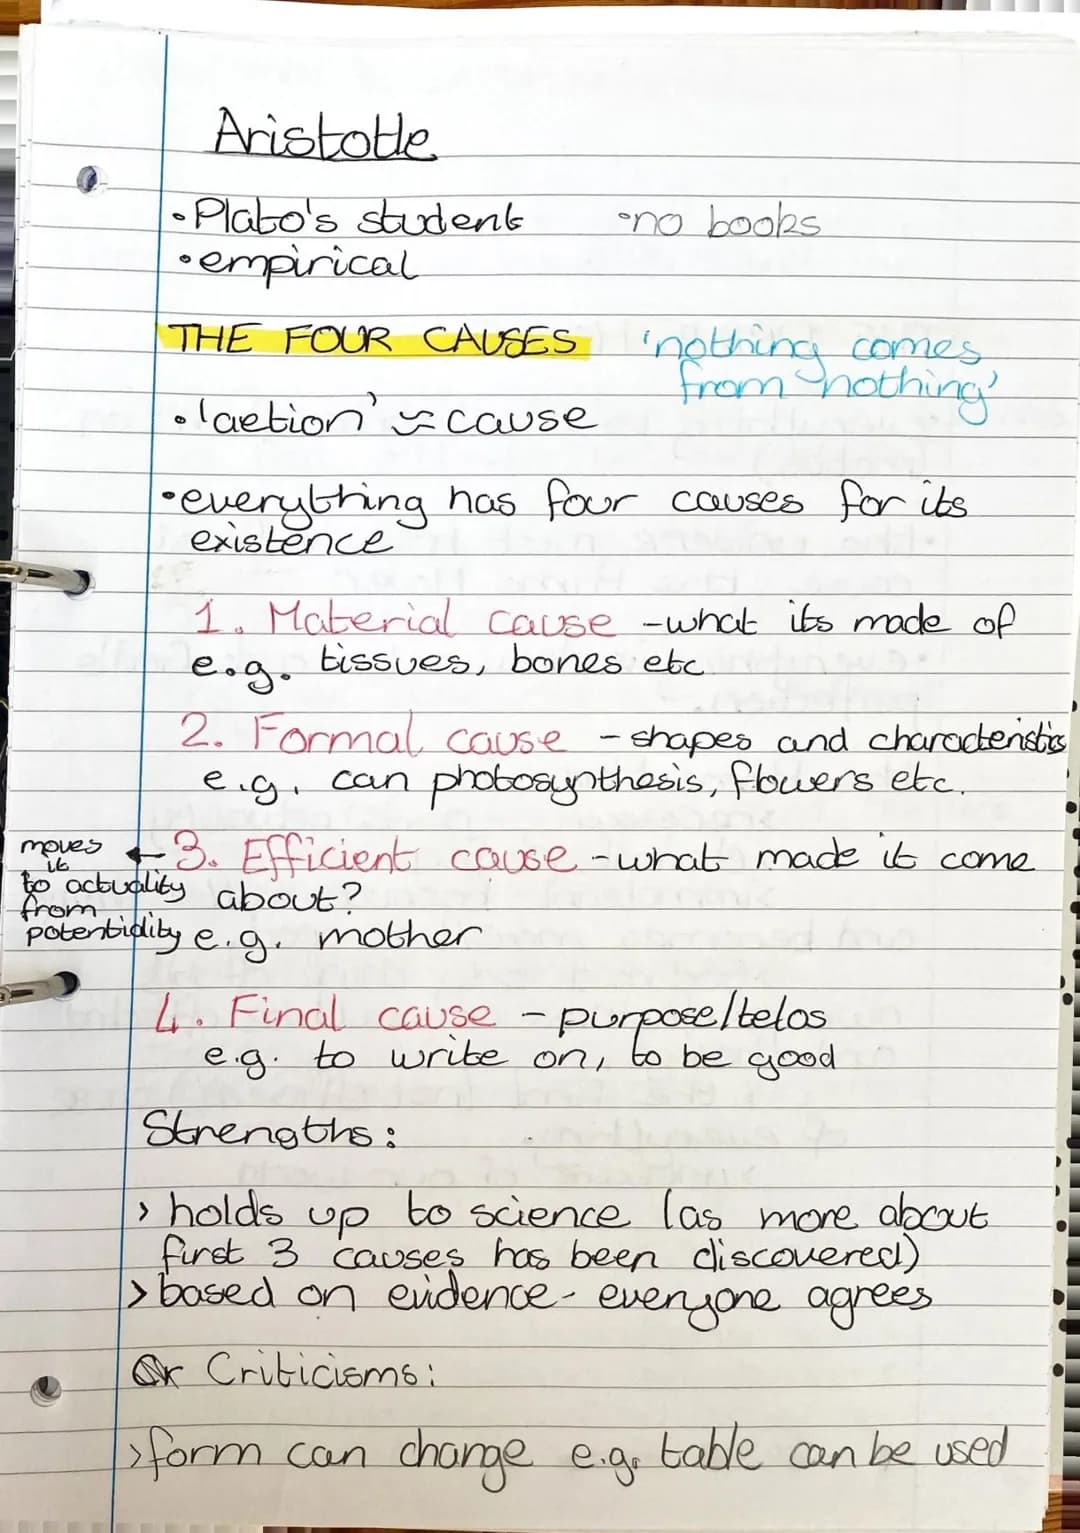 Aristotle
• Plato's student •no books
• empirical
THE FOUR CAUSES 'nothing comes
from nothing'
• 'aetion' ≈ cause
• everything has four causes for its
existence
1. Material cause - what its made of
e.g. tissues, bones etc
2. Formal cause - shapes and characteristics
e.g. can photosynthesis, flowers etc.
3. Efficient cause - what made it come
about?
e.g. mother
moves
it
to actuality
from
potentiality
4. Final cause - purpose/telos
e.g. to write on, to be good
Strengths:
> holds up to science (as more about
first 3 causes has been discovered)
> based on evidence - everyone agrees
Criticisms:
> form can change e.g. table can be used